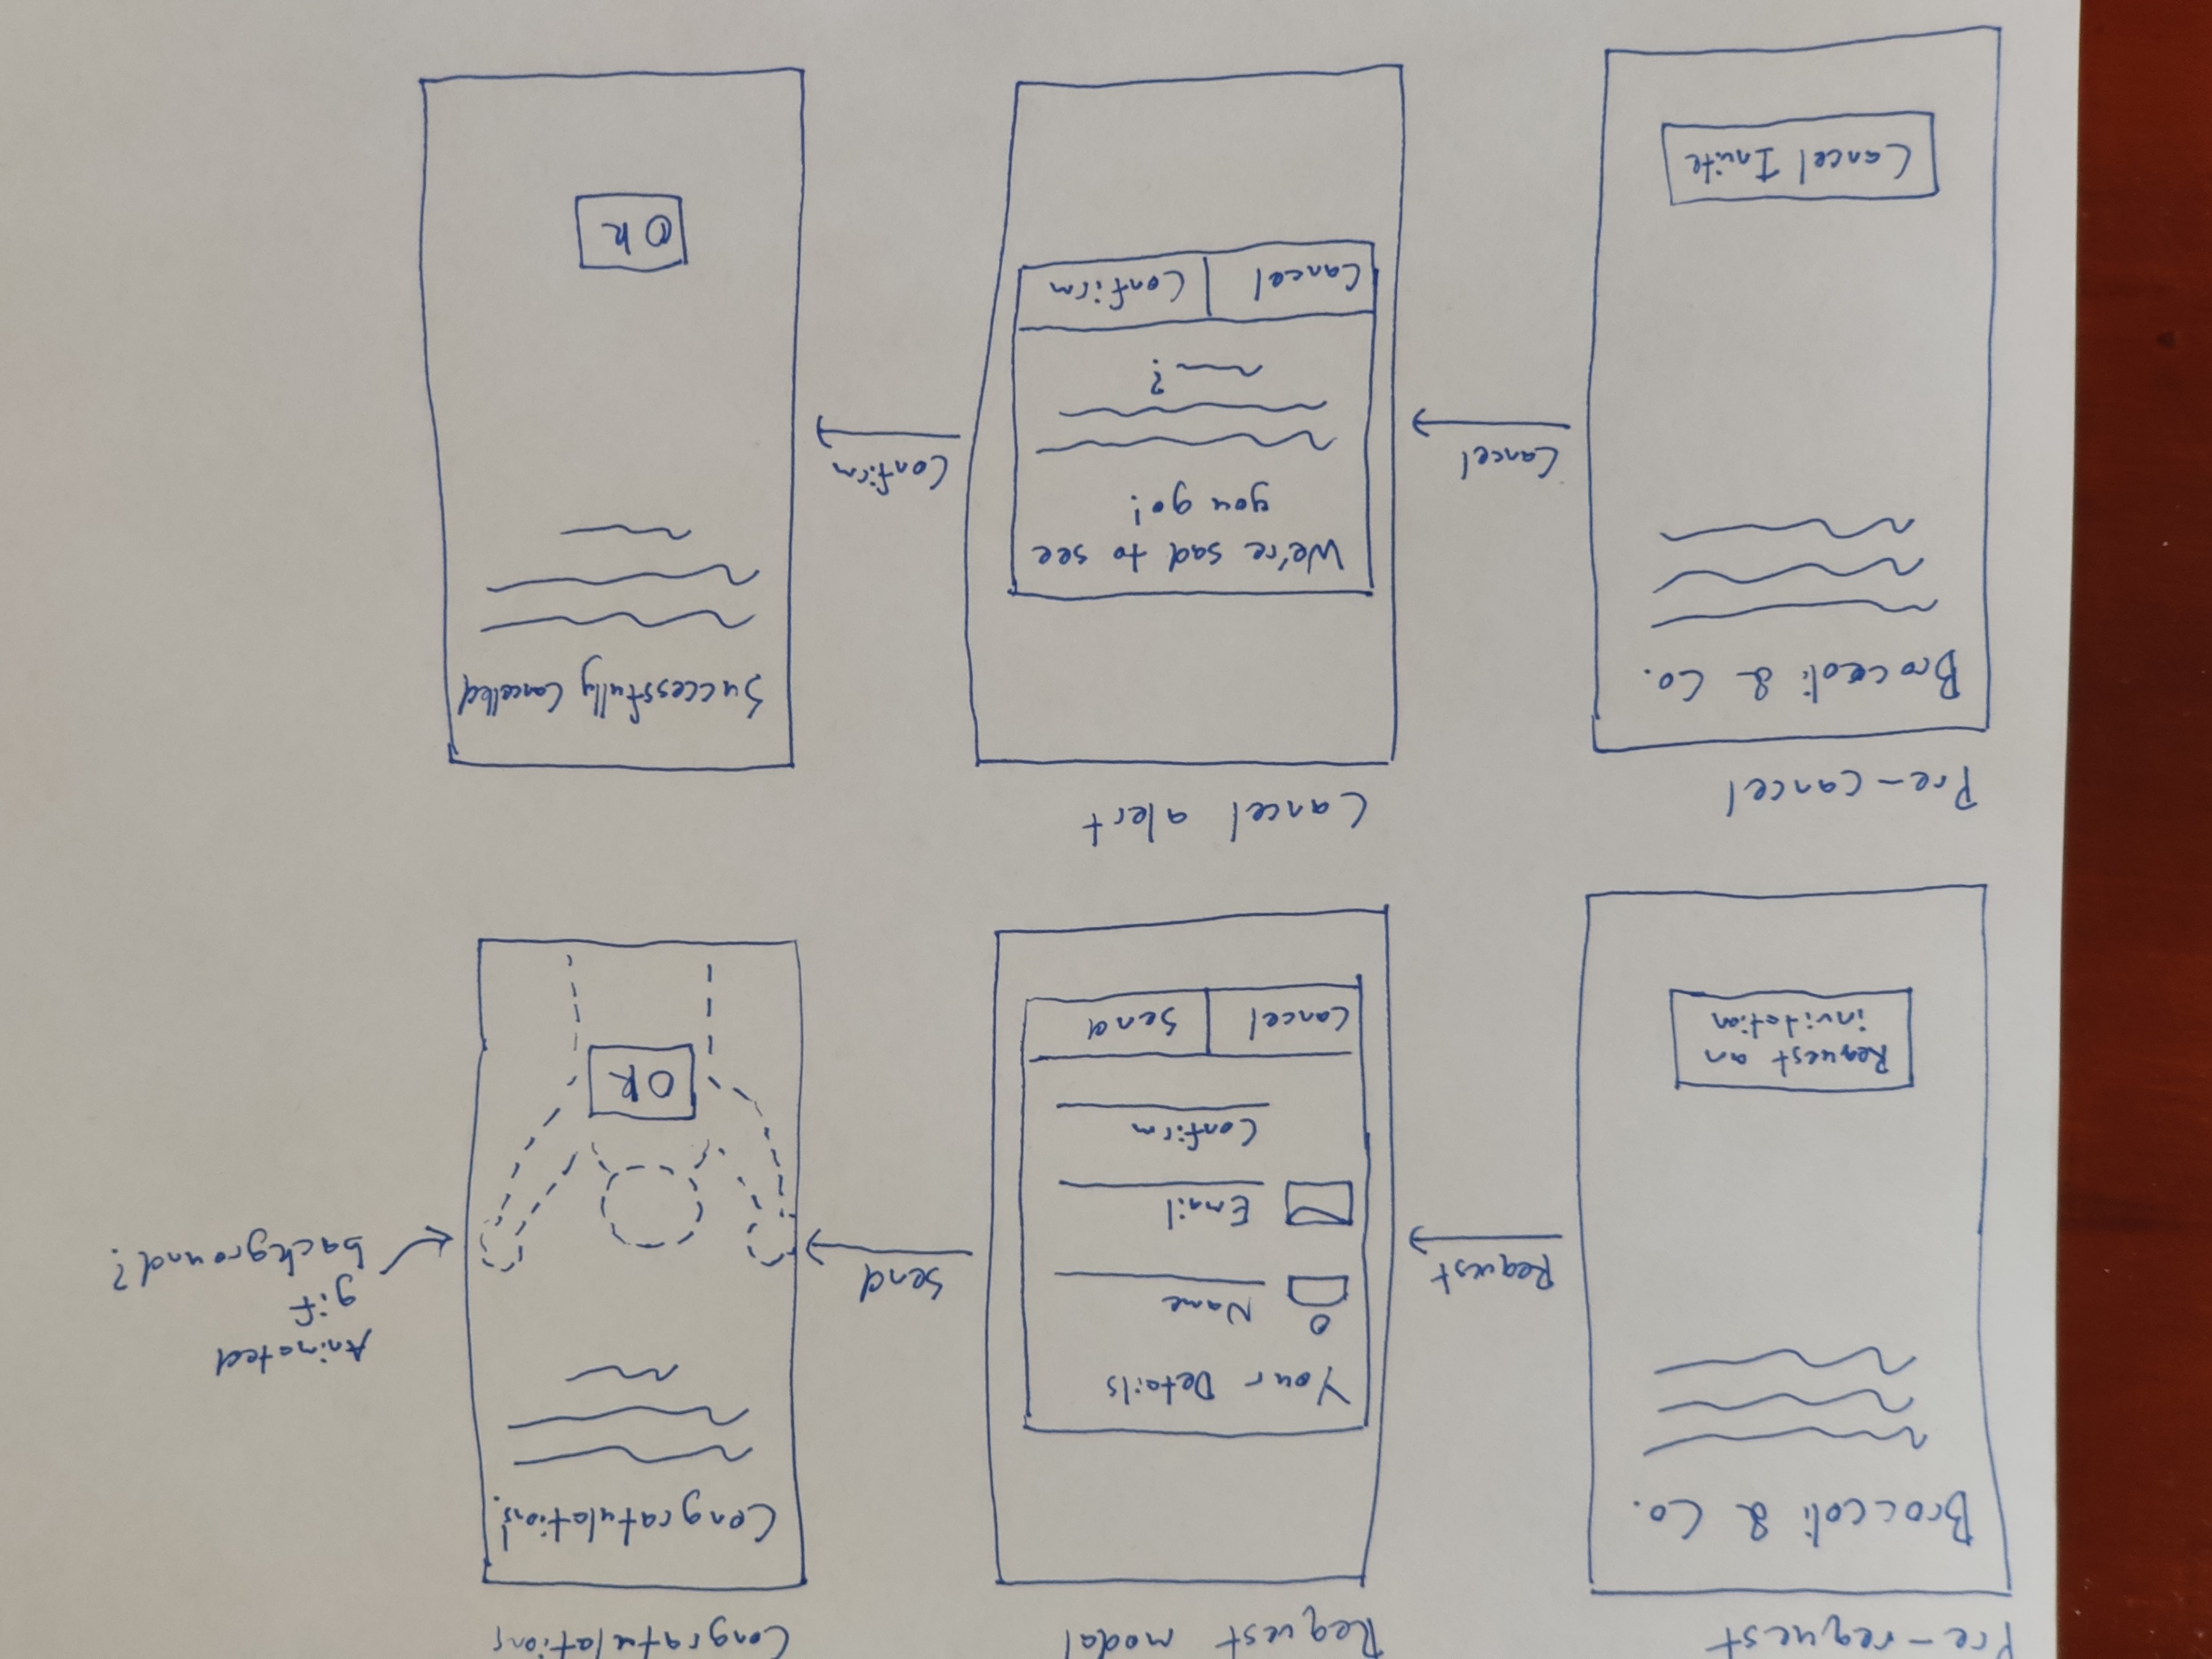 Pre-request
Broccoli & Co.
Request an
invitation
Request
Request modal
Your Details
Name
Email
Confirm
Cancel
Send
Send
Congratulations
Congratulations!
OK
Animated
gif
background?
Pre-cancel
Broccoli & Co.
Cancel Invite
Cancel
Cancel alert
We're sad to see
you go!
?
Cancel
Confirm
Confirm
Successfully Cancelled
OK